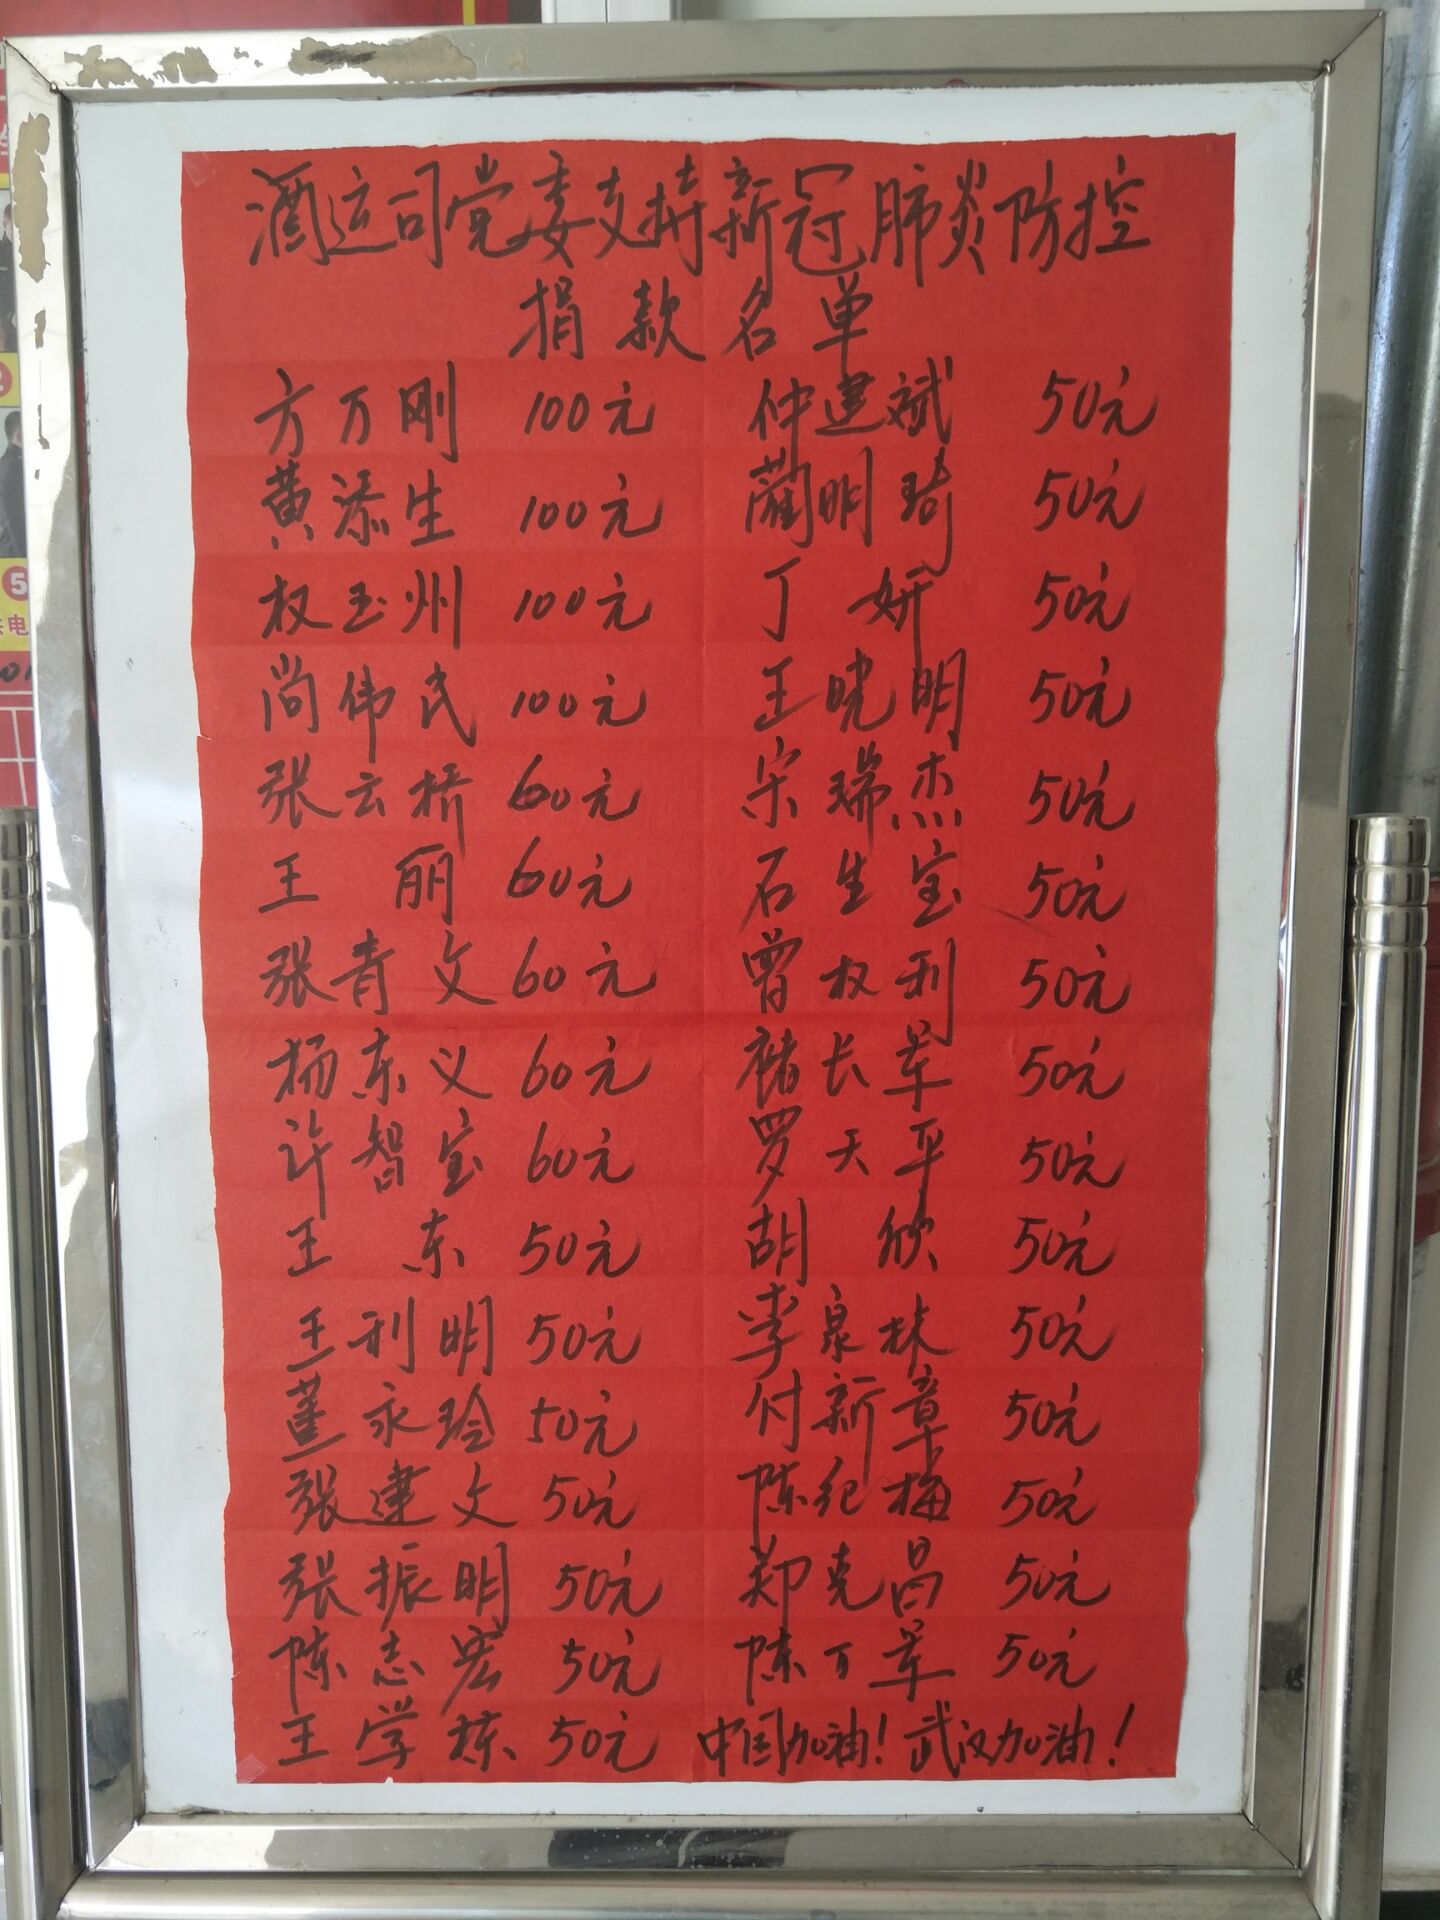 酒运司党委支持新冠肺炎防控
捐款名单
方万刚 100元 仲建斌 50元
黄添生 100元 蔺明琦 50元
权玉州 100元 丁妍 50元
尚伟民 100元 王晓明 50元
张云桥 60元 宋瑞杰 50元
王丽 60元 石生宝 50元
张青文 60元 曾权利 50元
杨东义 60元 褚长军 50元
许智宝 60元 罗天平 50元
王东 50元 胡欣 50元
王利明 50元 李泉林 50元
董永玲 50元 付新章 50元
张建文 50元 陈纪梅 50元
张振明 50元 郑克昌 50元
陈志宏 50元 陈万军 50元
王学栋 50元 中国加油！武汉加油！